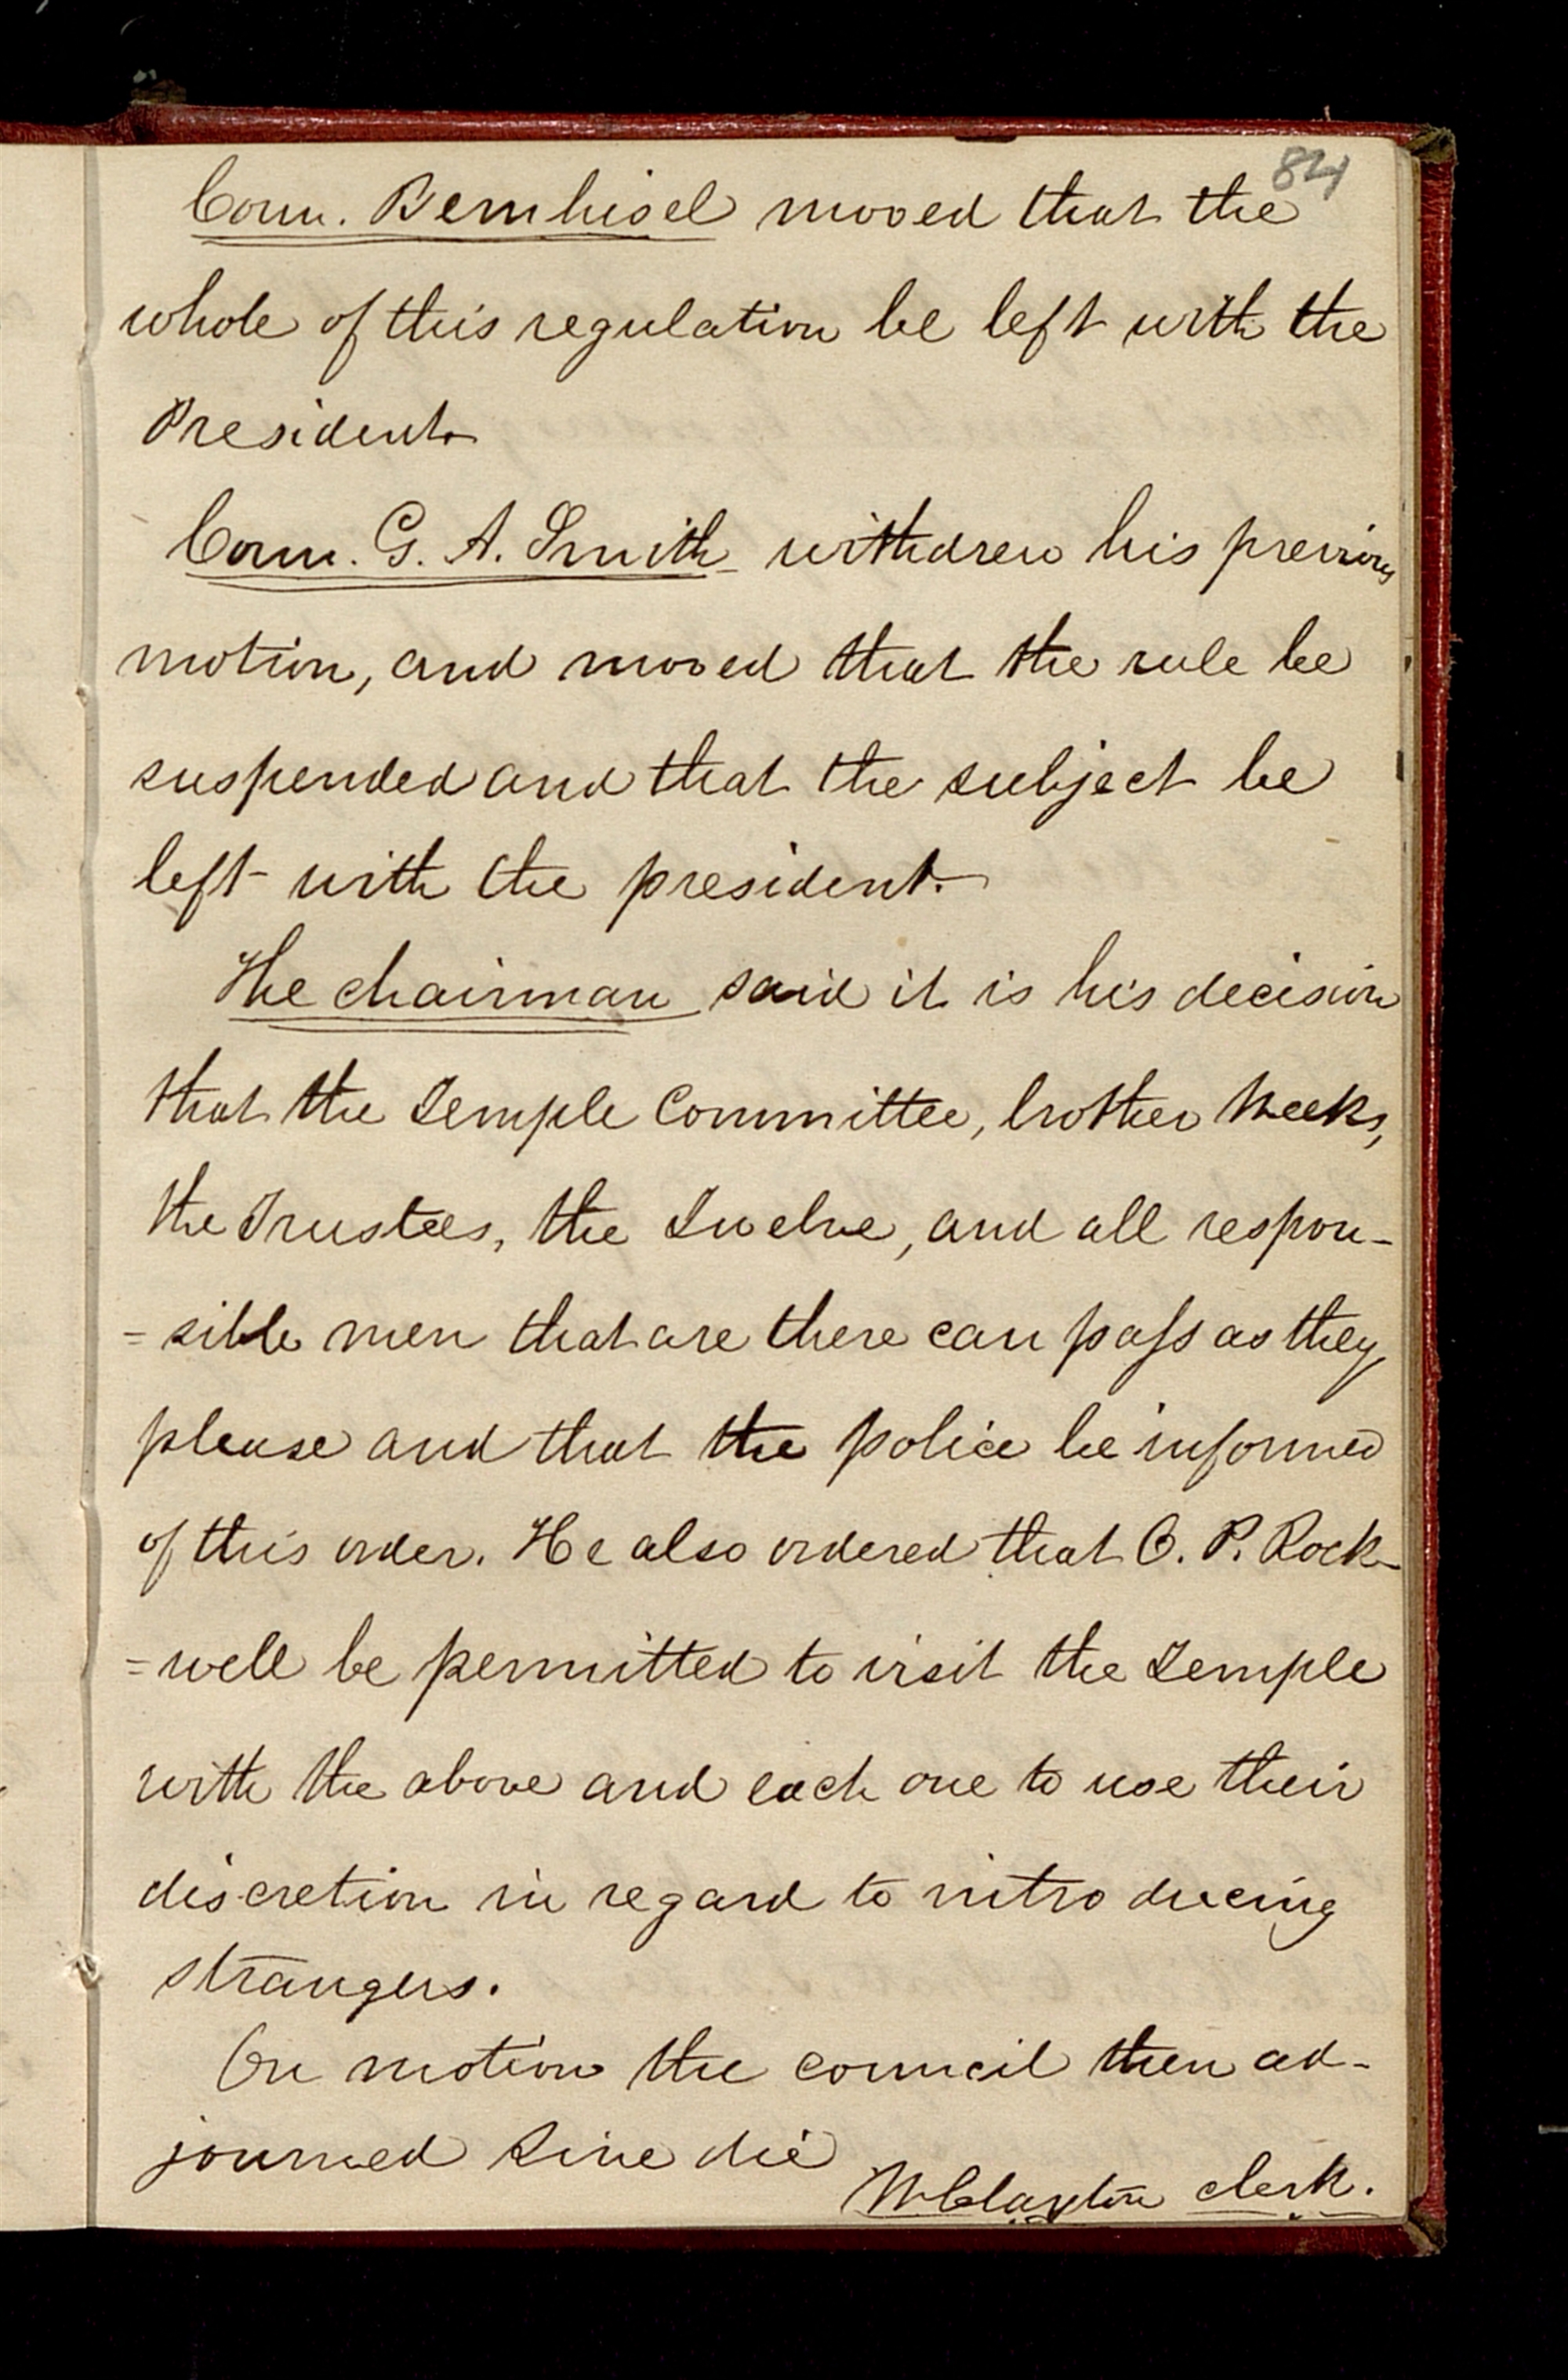 84
Coun. Bernhisel moved that the
whole of this regulation be left with the
President.
Coun. G. A. Smith withdrew his previous
motion, and moved that the rule be
suspended and that the subject be
left with the president.
The chairman said it is his decision
that the Temple Committee, brother Weeks,
the Trustees, the Twelve, and all respon-
=sible men that are there can pass as they
please and that the police be informed
of this order. He also ordered that O. P. Rock-
=well be permitted to visit the Temple
with the above and each one to use their
discretion in regard to introducing
strangers.
On motion the council then ad-
journed Sine die
Wm Clayton clerk.